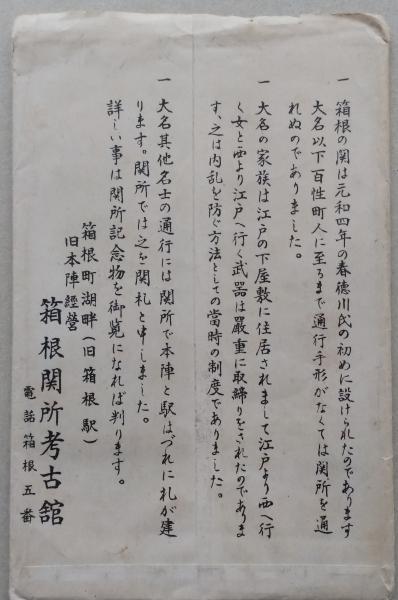 一 箱根の関は元和四年の春徳川氏の初めに設けられたのであります
大名以下百性町人に至るまで通行手形がなくては関所を通
れぬのでありました。
一 大名の家族は江戸の下屋敷に住居されまして江戸より西へ行
く女と西より江戸へ行く武器は嚴重に取締りをされたのでありま
す、之は内乱を防ぐ方法としての當時の制度でありました。
一 大名其他名士の通行には関所で本陣と駅はづれに札が建
ります。関所では之を関札と申しました。
詳しい事は関所記念物を御覧になれば判ります。
箱根町湖畔(旧箱根駅)
旧本陣經営
箱根関所考古舘
電話箱根五番